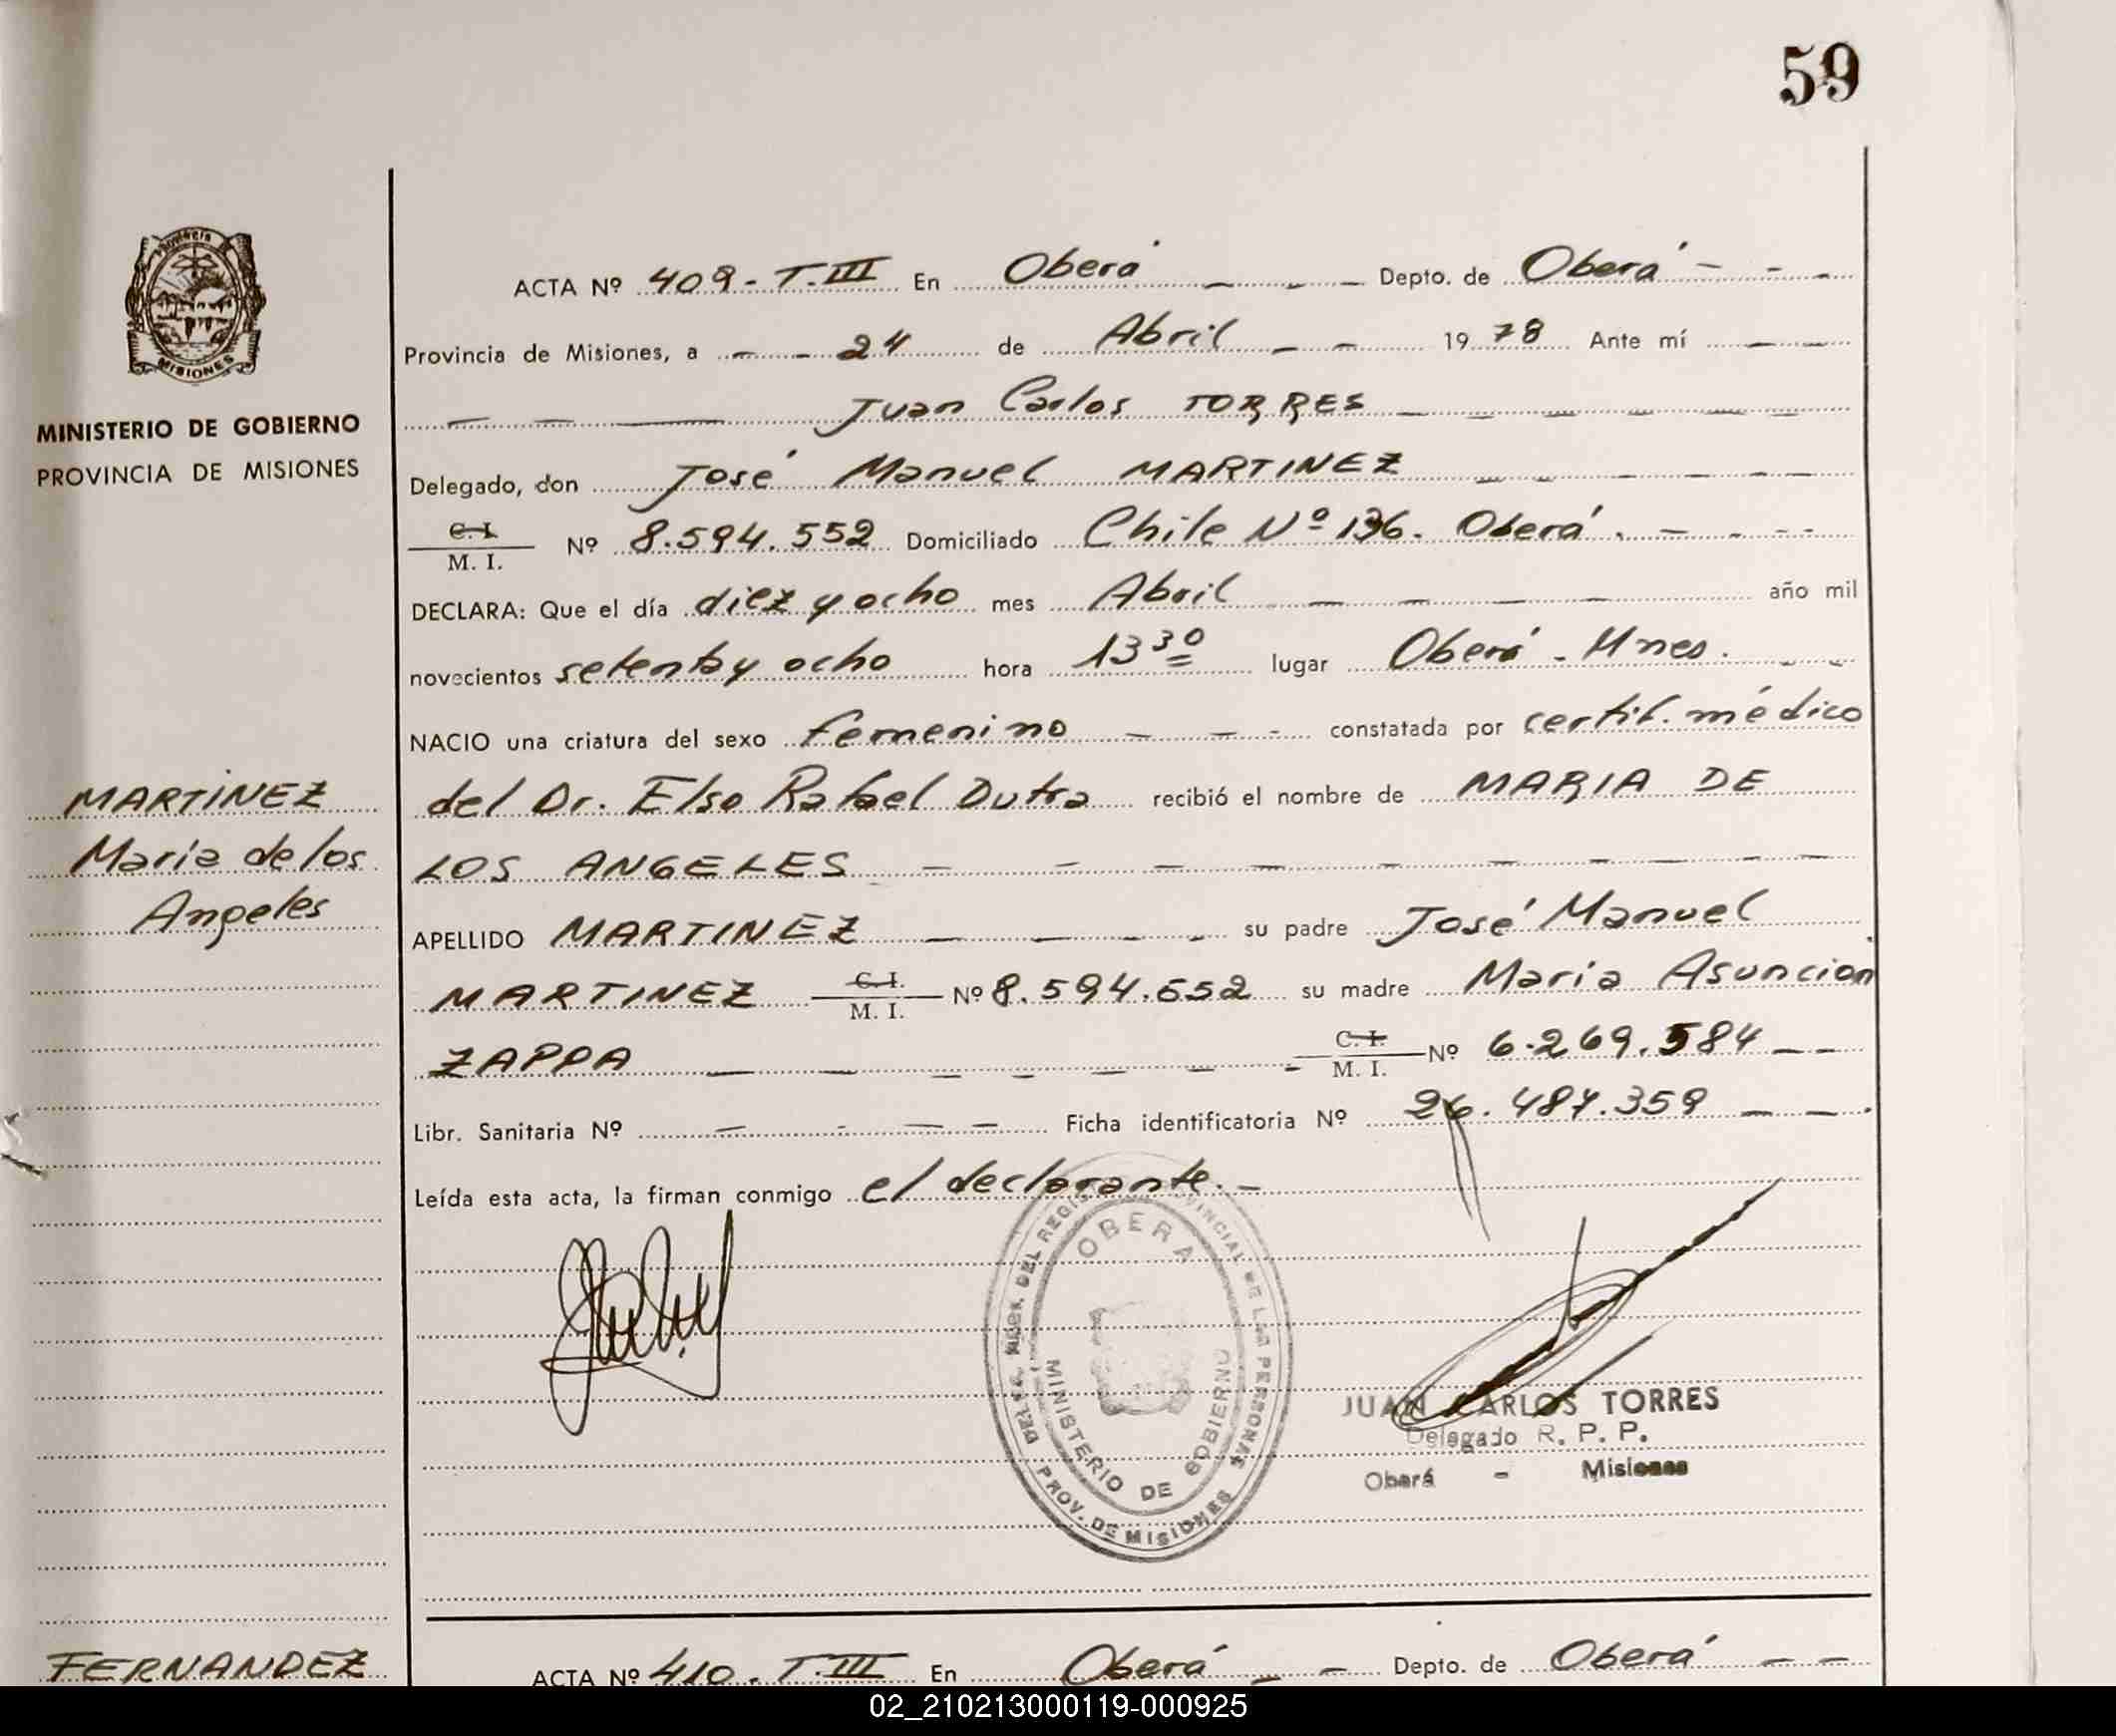 59
Provincia
MISIONES
MINISTERIO DE GOBIERNO
PROVINCIA DE MISIONES
ACTA Nº 409-T.III En Oberá Depto. de Oberá
Provincia de Misiones, a 24 de Abril 1978 Ante mí
Juan Carlos TORRES
Delegado, don José Manuel MARTINEZ
C. I.
M. I. Nº 8.594.552 Domiciliado Chile Nº 136. Oberá.
DECLARA: Que el día diez y ocho mes Abril año mil
novecientos setenta y ocho hora 13 30 lugar Oberá - Mnes.
NACIO una criatura del sexo femenino constatada por certif. médico
del Dr. Elso Rafael Dutra recibió el nombre de MARIA DE
LOS ANGELES
APELLIDO MARTINEZ su padre José Manuel
MARTINEZ C. I. M. I. Nº 8.594.552 su madre Maria Asuncion
ZAPPA C. I. M. I. Nº 6.269.584
Libr. Sanitaria Nº Ficha identificatoria Nº 26.487.359
Leída esta acta, la firman conmigo el declarante.-
MARTINEZ
María de los
Angeles
OBERA
MINISTERIO DE GOBIERNO
PROV. DE MISIONES
JUAN CARLOS TORRES
Delegado R. P. P.
Oberá - Misiones
FERNANDEZ
ACTA Nº 410-T.III En Oberá Depto. de Oberá
02_210213000119-000925